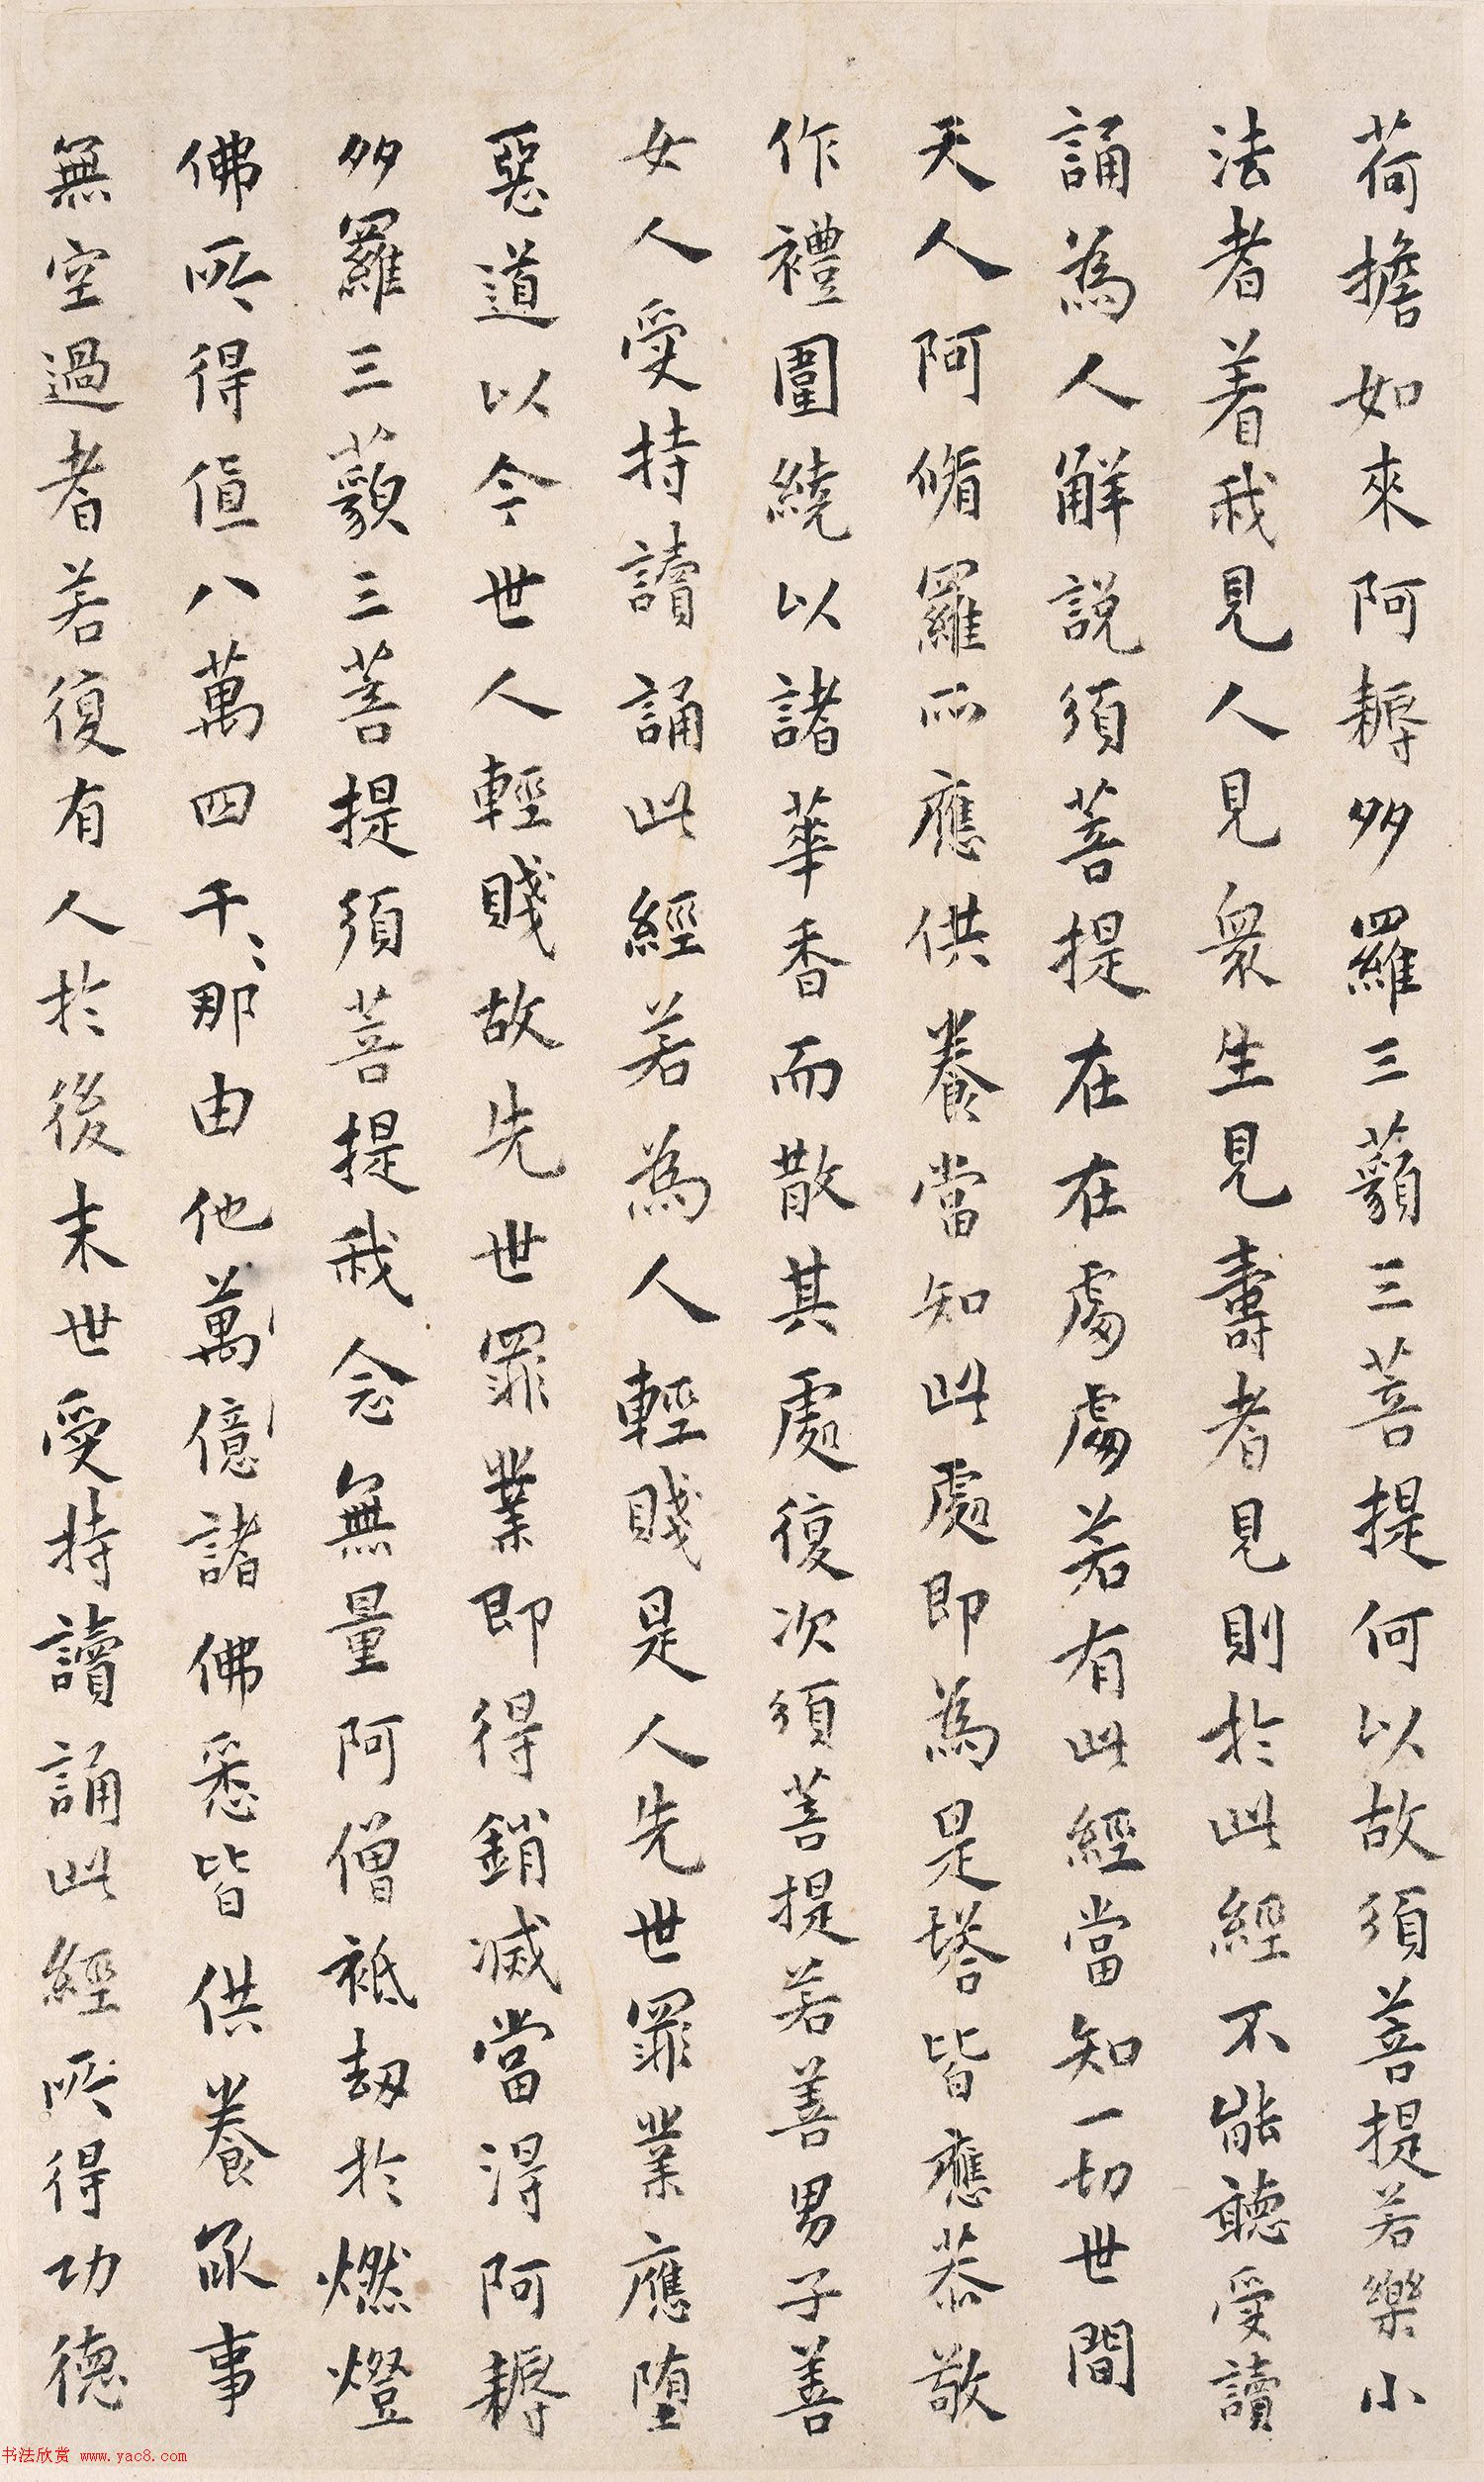 荷擔如來阿耨多羅三藐三菩提何以故須菩提若樂小
法者着我見人見衆生見壽者見則於此經不能聽受讀
誦為人解說須菩提在在處處若有此經當知一切世間
天人阿脩羅所應供養當知此處即為是塔皆應恭敬
作禮圍繞以諸華香而散其處復次須菩提若善男子善
女人受持讀誦此經若為人輕賤是人先世罪業應墮
惡道以今世人輕賤故先世罪業即得銷滅當得阿耨
多羅三藐三菩提須菩提我念無量阿僧祇劫於燃燈
佛所得值八萬四千〻那由他萬億諸佛悉皆供養承事
無空過者若復有人於後末世受持讀誦此經所得功德
书法欣赏 www.yac8.com